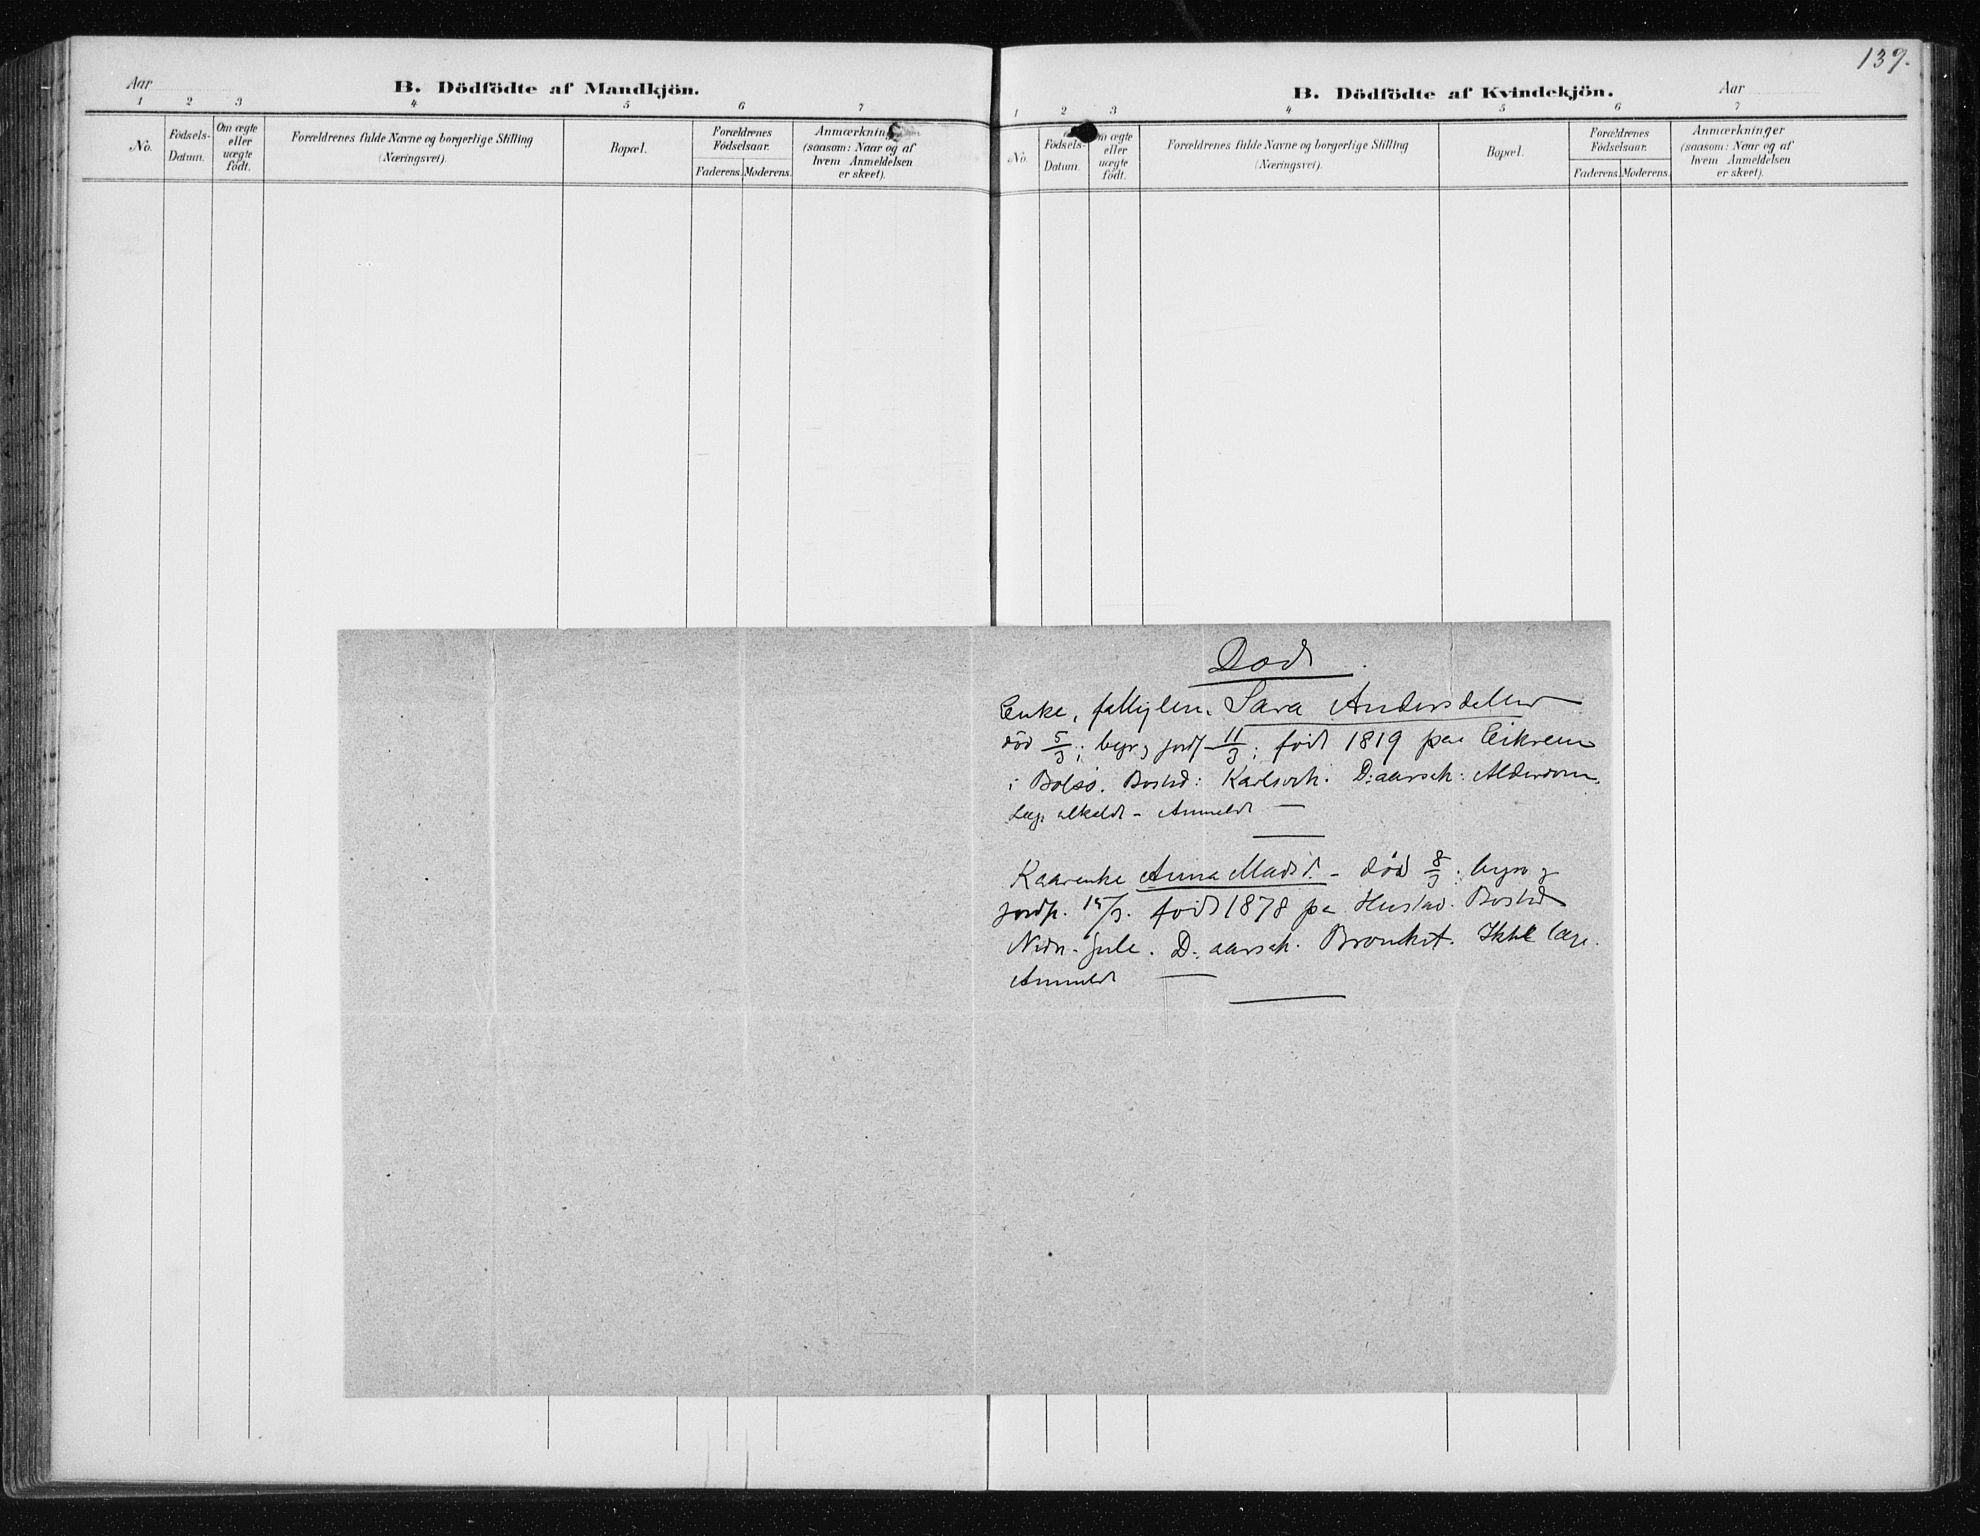 139.
Aar
B. Dödfödte af Mandkjön.
1 2 3 4 5 6 7
No.
Fødsels-Datum.
Om ægte eller uægte født.
Forældrenes fulde Navne og borgerlige Stilling (Næringsvei).
Bopæl.
Forældrenes Fødselsaar.
Faderens. Moderens.
Anmærkning (saasom: Naar og af hvem Anmeldelsen er skeet).
B. Dödfödte af Kvindekjön.
Aar
1 2 3 4 5 6 7
No.
Fødsels-Datum.
Om ægte eller uægte født.
Forældrenes fulde Navne og borgerlige Stilling (Næringsvei).
Bopæl.
Forældrenes Fødselsaar.
Faderens. Moderens.
Anmærkninger (saasom: Naar og af hvem Anmeldelsen er skeet).
Død
Enke, fattiglem. Sara Andersdatter
død 5/3; begr. g jordf. 11/3; født 1819 paa Eikrem
i Bolsø. Bosted: D: aarsak: Alderdom.
Læge tilkaldt - Anmeldt —
Kaarenke Anna Madsd. - død 8/3. begr g
jordf. 15/3. født 1878 pa Hustad. Bosted
Nedr. Jule. D: aarsak. Bronkit. Ikke læge.
Anmeldt —